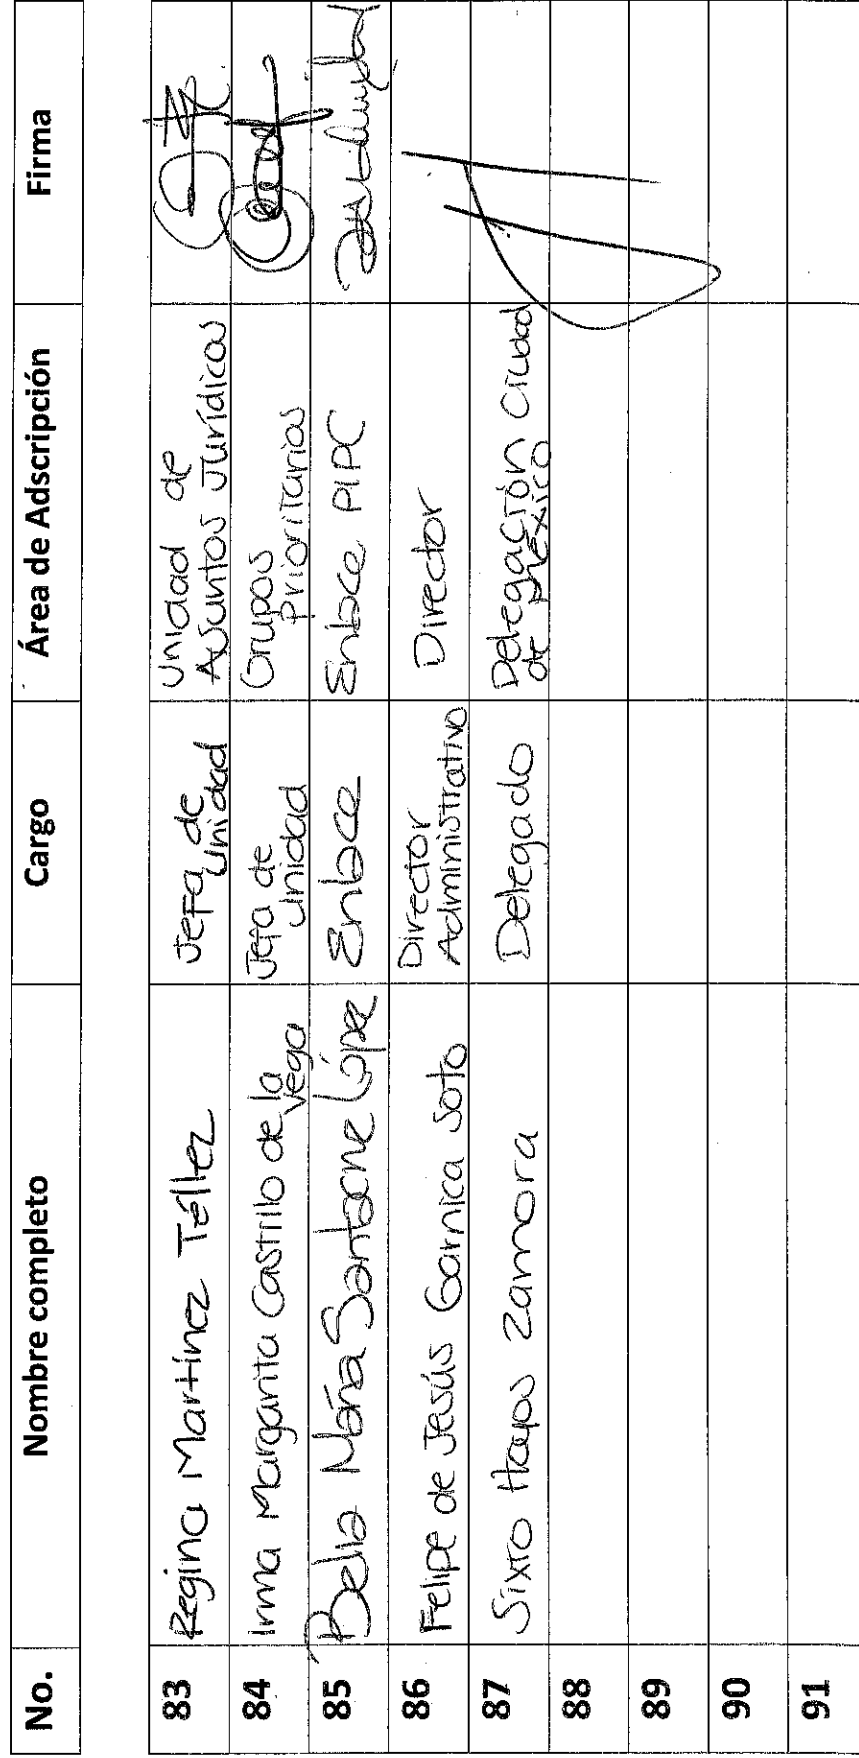 No. Nombre completo Cargo Área de Adscripción Firma
83 Regina Martínez Téllez Jefa de Unidad Unidad de Asuntos Jurídicos
84 Irma Margarita Castrillo de la Vega Jefa de Unidad Grupos Prioritarios
85 Belia María Santacruz López Enlace Enlace PIPC
86 Felipe de Jesús Garnica Soto Director Administrativo Director
87 Sixto Hoyos Zamora Delegado Delegación Ciudad de México
88
89
90
91